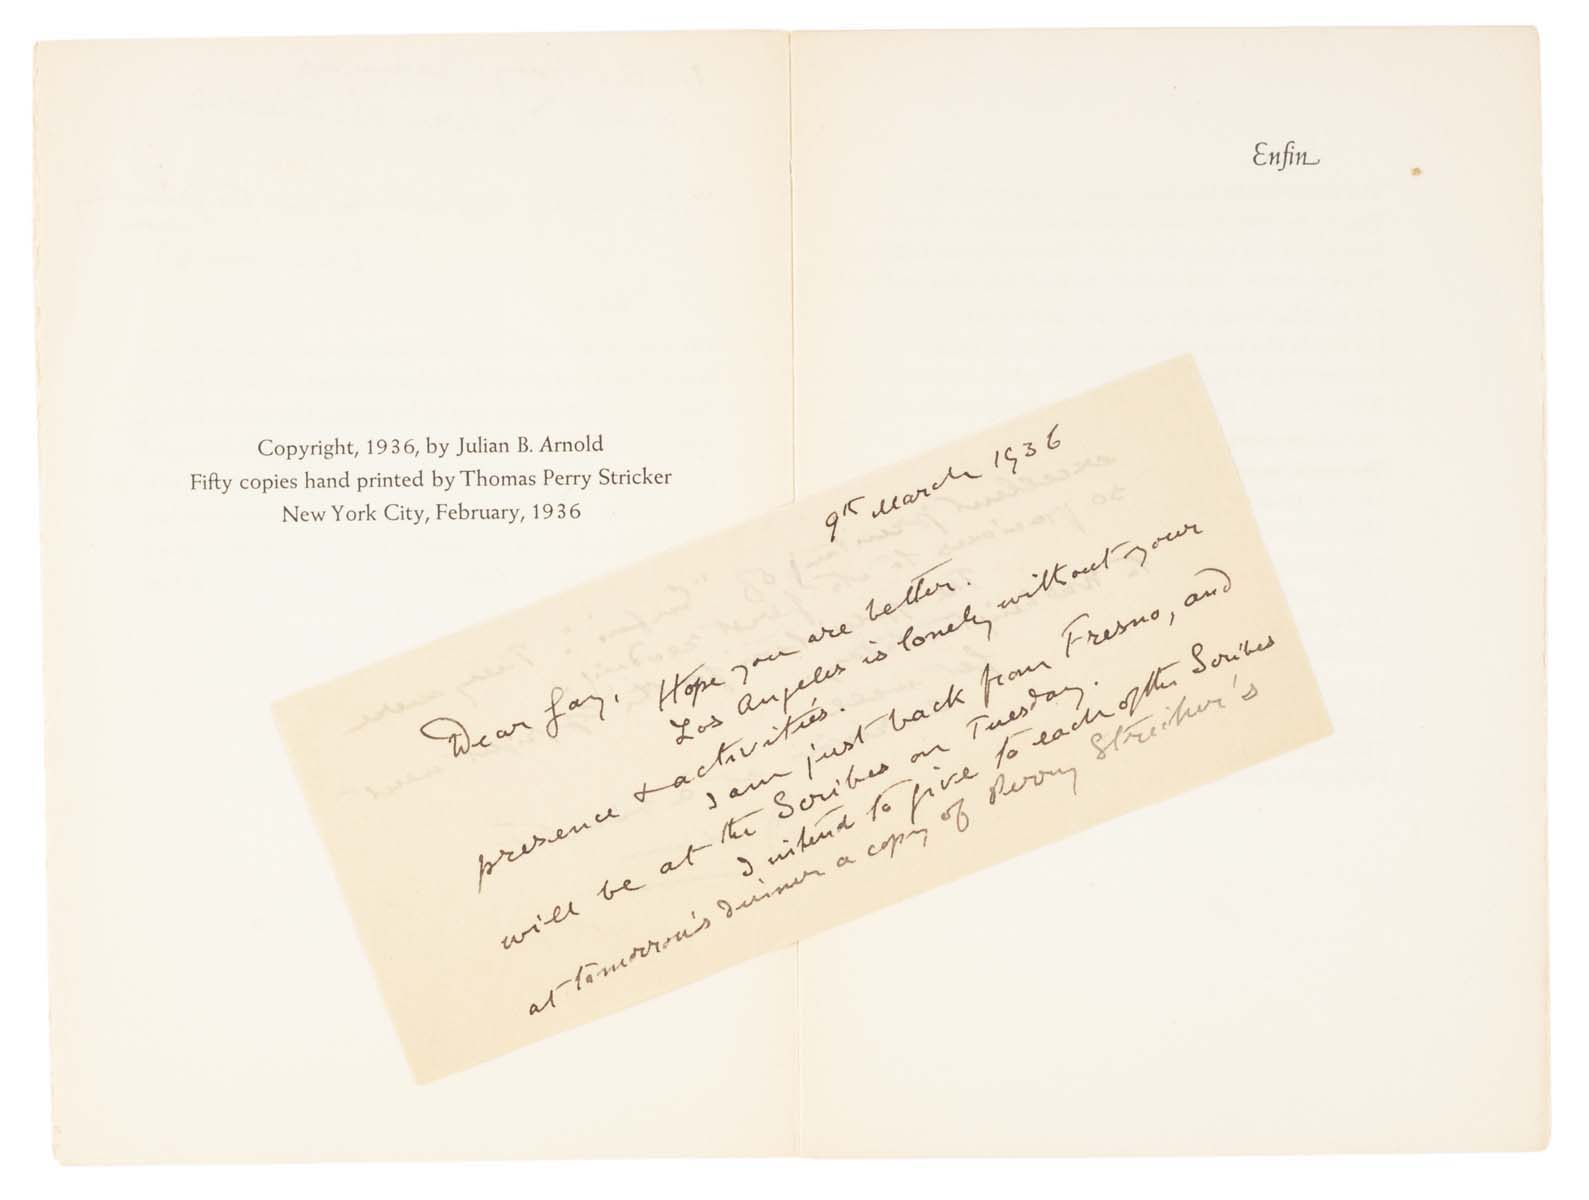 Copyright, 1936, by Julian B. Arnold
Fifty copies hand printed by Thomas Perry Stricker
New York City, February, 1936
Enfin
9th March 1936
Dear Gay, Hope you are better.
Los Angeles is lonely without your
presence & activities.
I am just back from Fresno, and
will be at the Scribes on Tuesday.
I intend to give to each of the Scribes
at tomorrow's dinner a copy of Perry Stricker's